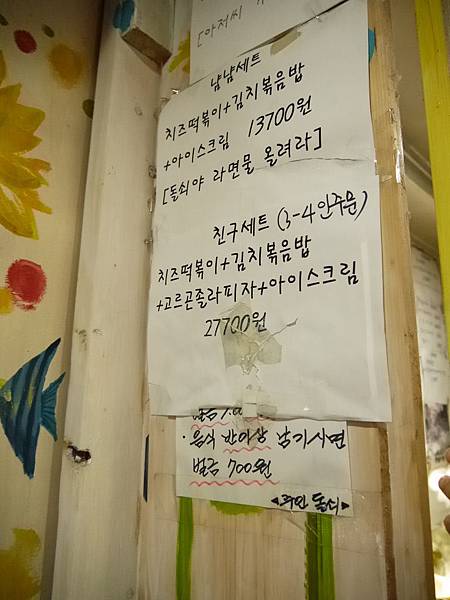 [아저씨
냠냠세트
치즈떡볶이+김치볶음밥
+아이스크림 13700원
[돌쇠야 라면물 올려라]
친구세트 (3-4인주문)
치즈떡볶이+김치볶음밥
+고르곤졸라피자+아이스크림
27700원
·음식 반이상 남기시면
벌금 700원
◀주인 돌쇠▶